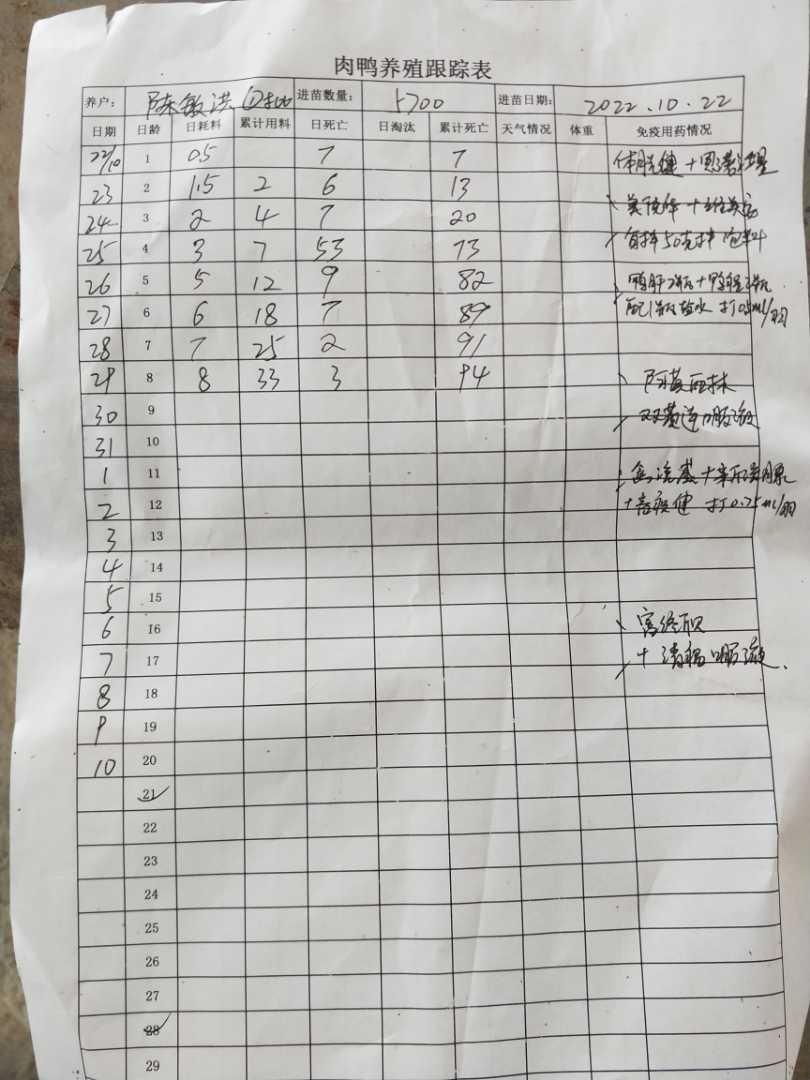 肉鸭养殖跟踪表
养户: 陈敏洪 ①批 进苗数量: 5700 进苗日期: 2022.10.22
日期 日龄 日耗料 累计用料 日死亡 日淘汰 累计死亡 天气情况 体重 免疫用药情况
22/10 1 0.5 7 7
23 2 1.5 2 6 13
24 3 2 4 7 20
25 4 3 7 53 73
26 5 5 12 9 82
27 6 6 18 7 89 打0.5ml/羽
28 7 7 25 2 91
29 8 8 33 3 94 阿莫西林
30 9 双黄连口服液
31 10
1 11
2 12 打0.75ml/羽
3 13
4 14
5 15
6 16
7 17 口服液
8 18
9 19
10 20
21
22
23
24
25
26
27
28
29